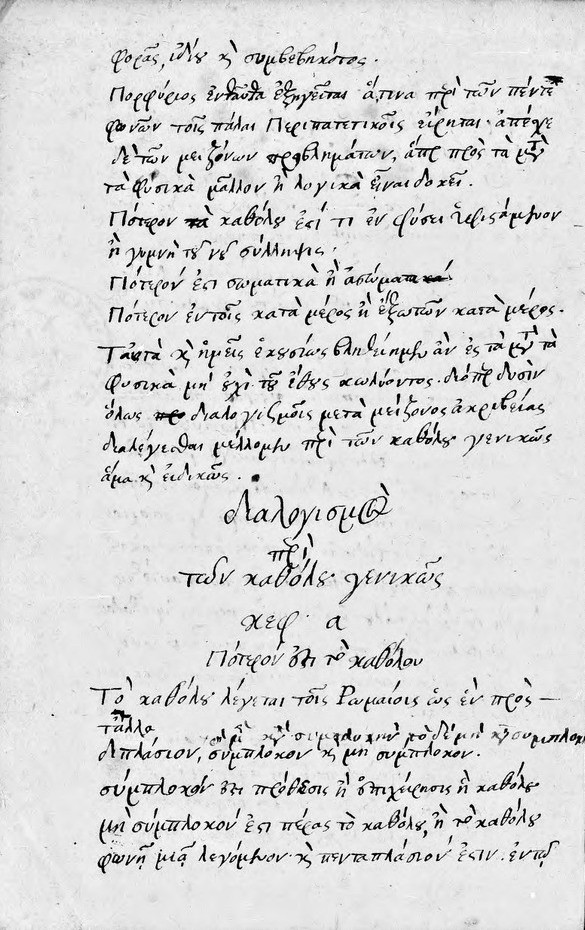 φορᾶς, ἰδίου καὶ συμβεβηκότος.
Πορφύριος ἐνθαῦθα ἐξηγεῖται ἅτινα περὶ τῶν πέντε
φωνῶν τοῖς πάλαι Περιπατετικοῖς εἴρηται· ἀπέχε
δὲ τῶν μειζόνων προβλημάτων, ἅπερ πρὸς τὰ μετὰ
τὰ φυσικὰ μᾶλλον ἢ λογικὰ εἶναι δοκεῖ.
Πότερον τὰ καθόλου ἐστί τι ἐν φύσει
ἢ γυμνὴ τοῦ νοῦ σύλληψις·
Πότερόν ἐστι σωματικὰ ἢ ἀσώματα
Πότερον ἐν τοῖς κατὰ μέρος ἢ ἔξω τῶν κατὰ μέρος.
Ταῦτα καὶ ἡμεῖς ἑκουσίως ἂν ἐς τὰ μετὰ τὰ
Φυσικὰ μὴ οὐχὶ τοῦ ἔθους κωλύοντος. διόπερ δυσὶν
ὅλως διαλογισμοῖς μετὰ μείζονος ἀκριβείας
διαλέγεσθαι μέλλομεν περὶ τῶν καθόλου γενικῶς
ἅμα καὶ εἰδικῶς.
διαλογισμὸς
περὶ
τῶν καθόλου γενικῶς
κεφ. α
Πότερόν ἐστι τὸ καθόλου
Τὸ καθόλου λέγεται τοῖς Ῥωμαίοις ὡς ἓν πρὸς
τἆλλα
διπλάσιον, σύμπλοκον καὶ μὴ σύμπλοκον.
σύμπλοκόν ἐστι πρόθεσις ἢ ἐπιχείρησις ἢ καθόλου
μὴ σύμπλοκόν ἐστι πέρας τὸ καθόλου, ἢ τὸ καθόλου
φωνῇ μιᾷ λεγόμενον καὶ πενταπλάσιόν ἐστιν. ἐν τῷ